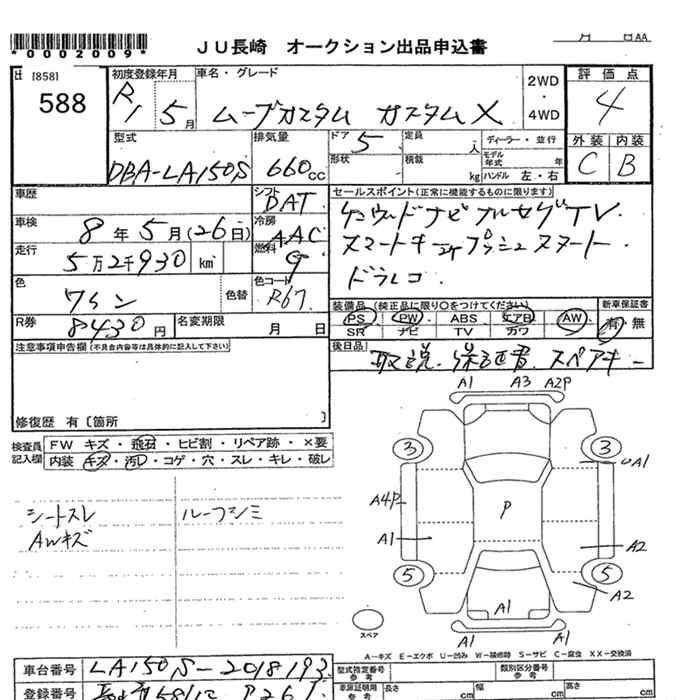 *0002009*
JU長崎 オークション出品申込書
月 日 AA
[858]
588
初度登録年月
R1 5月
車名・グレード
ムーブカスタム カスタムX
2WD・4WD
評価点
4
外装 内装
C B
型式
DBA-LA150S
排気量
660cc
ドア 5
形状
定員 人
積載 kg
ディーラー・並行
モデル年式 年
ハンドル 左・右
車歴
シフト
DAT
車検
8年5月(26日)
冷房
AAC
走行
5万2千930 km
燃料
G
色
ワイン
色替
色コード
R67
R券
8430円
名変期限 月 日
セールスポイント(正常に機能するものに限ります)
TV.
スマートキー プッシュスタート.
ドラレコ
装備品(純正品に限り○をつけてください)
PS PW ABS エアB AW
SR ナビ TV カワ
新車保証書
有・無
後日品
取説. 保証書. スペアキー
注意事項申告欄(不具合内容等は具体的に記入して下さい)
修復歴 有〔箇所 〕
検査員記入欄
FW キズ・飛石・ヒビ割・リペア跡・×要
内装 キズ・汚れ・コゲ・穴・スレ・キレ・破レ
シートスレ
AWキズ
ルーフシミ
A1 A3 A2P
3 3
A1
A4P
P
A1 A2
5 5
A2
A1
A1 A1
スペア
A-キズ E-エクボ U-凹み W-補修跡 S-サビ C-腐食 XX-交換済
車台番号
LA150S-2018193
型式指定番号 参考
類別区分番号 参考
登録番号
車庫証明用 参考
長さ cm 幅 cm 高さ cm